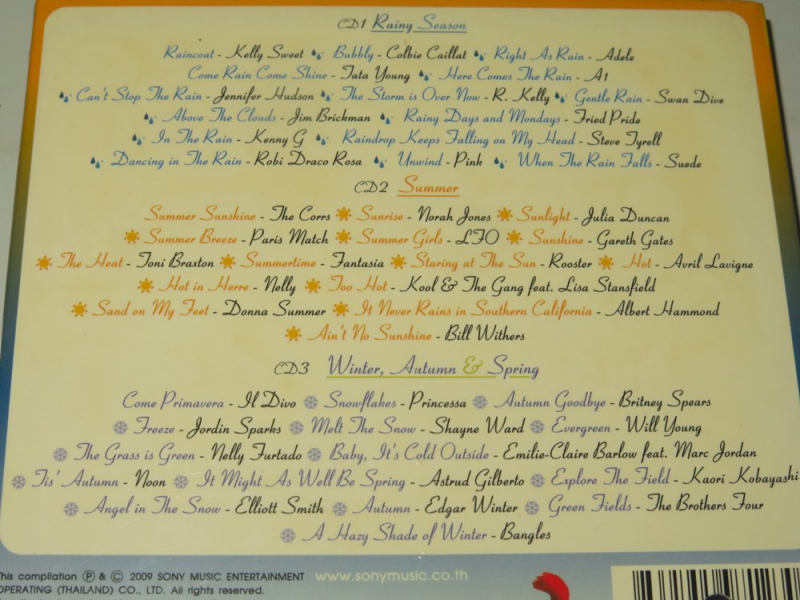 CD1 Rainy Season
Raincoat - Kelly Sweet Bubbly - Colbie Caillat Right As Rain - Adele
Come Rain Come Shine - Tata Young Here Comes The Rain - A1
Can't Stop The Rain - Jennifer Hudson The Storm is Over Now - R. Kelly Gentle Rain - Swan Dive
Above The Clouds - Jim Brickman Rainy Days and Mondays - Fried Pride
In The Rain - Kenny G Raindrop Keeps Falling on My Head - Steve Tyrell
Dancing in The Rain - Robi Draco Rosa Unwind - Pink When The Rain Falls - Suede
CD2 Summer
Summer Sunshine - The Corrs Sunrise - Norah Jones Sunlight - Julia Duncan
Summer Breeze - Paris Match Summer Girls - LFO Sunshine - Gareth Gates
The Heat - Toni Braxton Summertime - Fantasia Staring at The Sun - Rooster Hot - Avril Lavigne
Hot in Herre - Nelly Too Hot - Kool & The Gang feat. Lisa Stansfield
Sand on My Feet - Donna Summer It Never Rains in Southern California - Albert Hammond
Ain't No Sunshine - Bill Withers
CD3 Winter, Autumn & Spring
Come Primavera - Il Divo Snowflakes - Princessa Autumn Goodbye - Britney Spears
Freeze - Jordin Sparks Melt The Snow - Shayne Ward Evergreen - Will Young
The Grass is Green - Nelly Furtado Baby, It's Cold Outside - Emilie-Claire Barlow feat. Marc Jordan
Tis' Autumn - Noon It Might As Well Be Spring - Astrud Gilberto Explore The Field - Kaori Kobayashi
Angel in The Snow - Elliott Smith Autumn - Edgar Winter Green Fields - The Brothers Four
A Hazy Shade of Winter - Bangles
This compilation Ⓟ & © 2009 SONY MUSIC ENTERTAINMENT www.sonymusic.co.th
OPERATING (THAILAND) CO., LTD. All rights reserved.